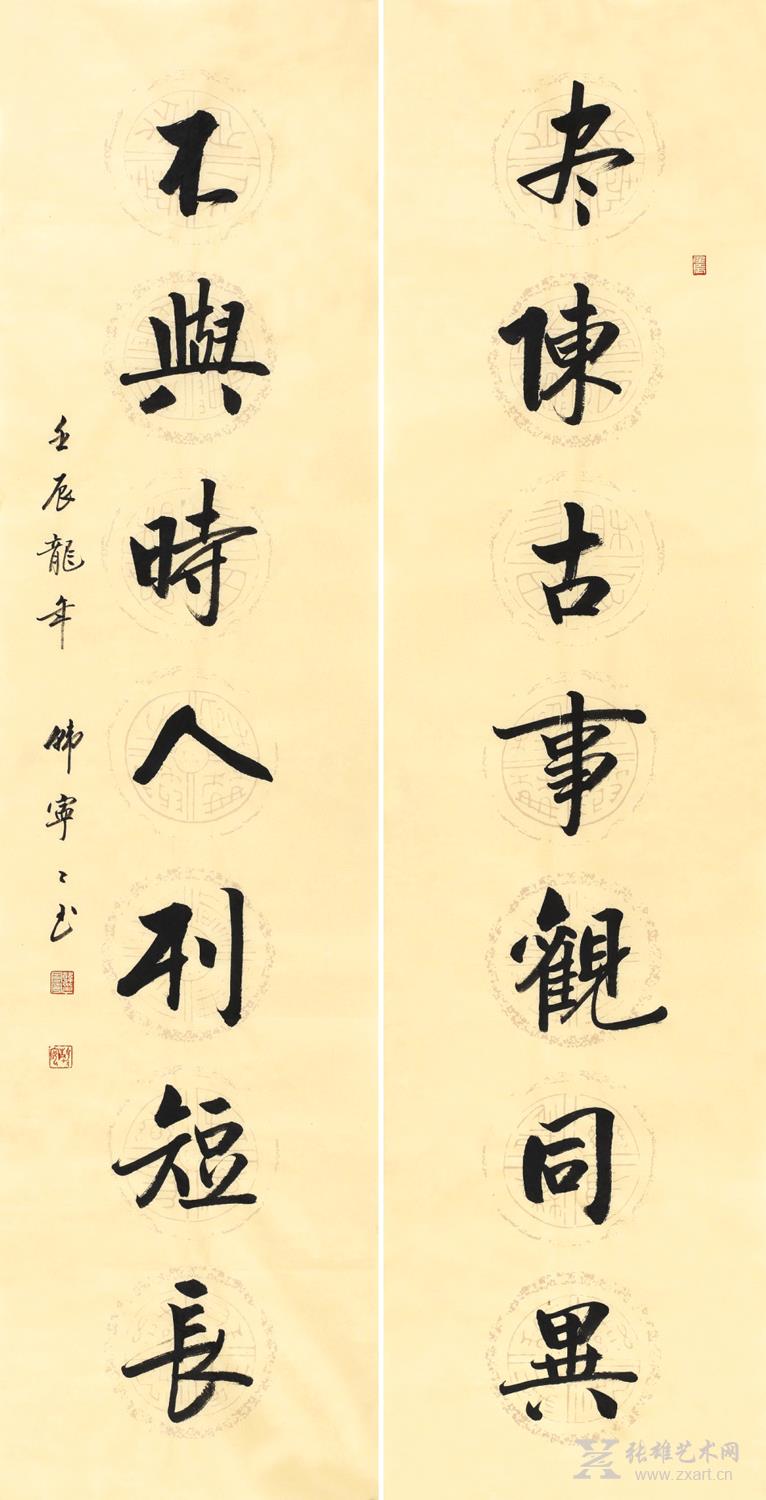 尽陳古事觀同異
不與時人列短長
壬辰龍年 韩寧〻书
张雄艺术网
www.zxart.cn